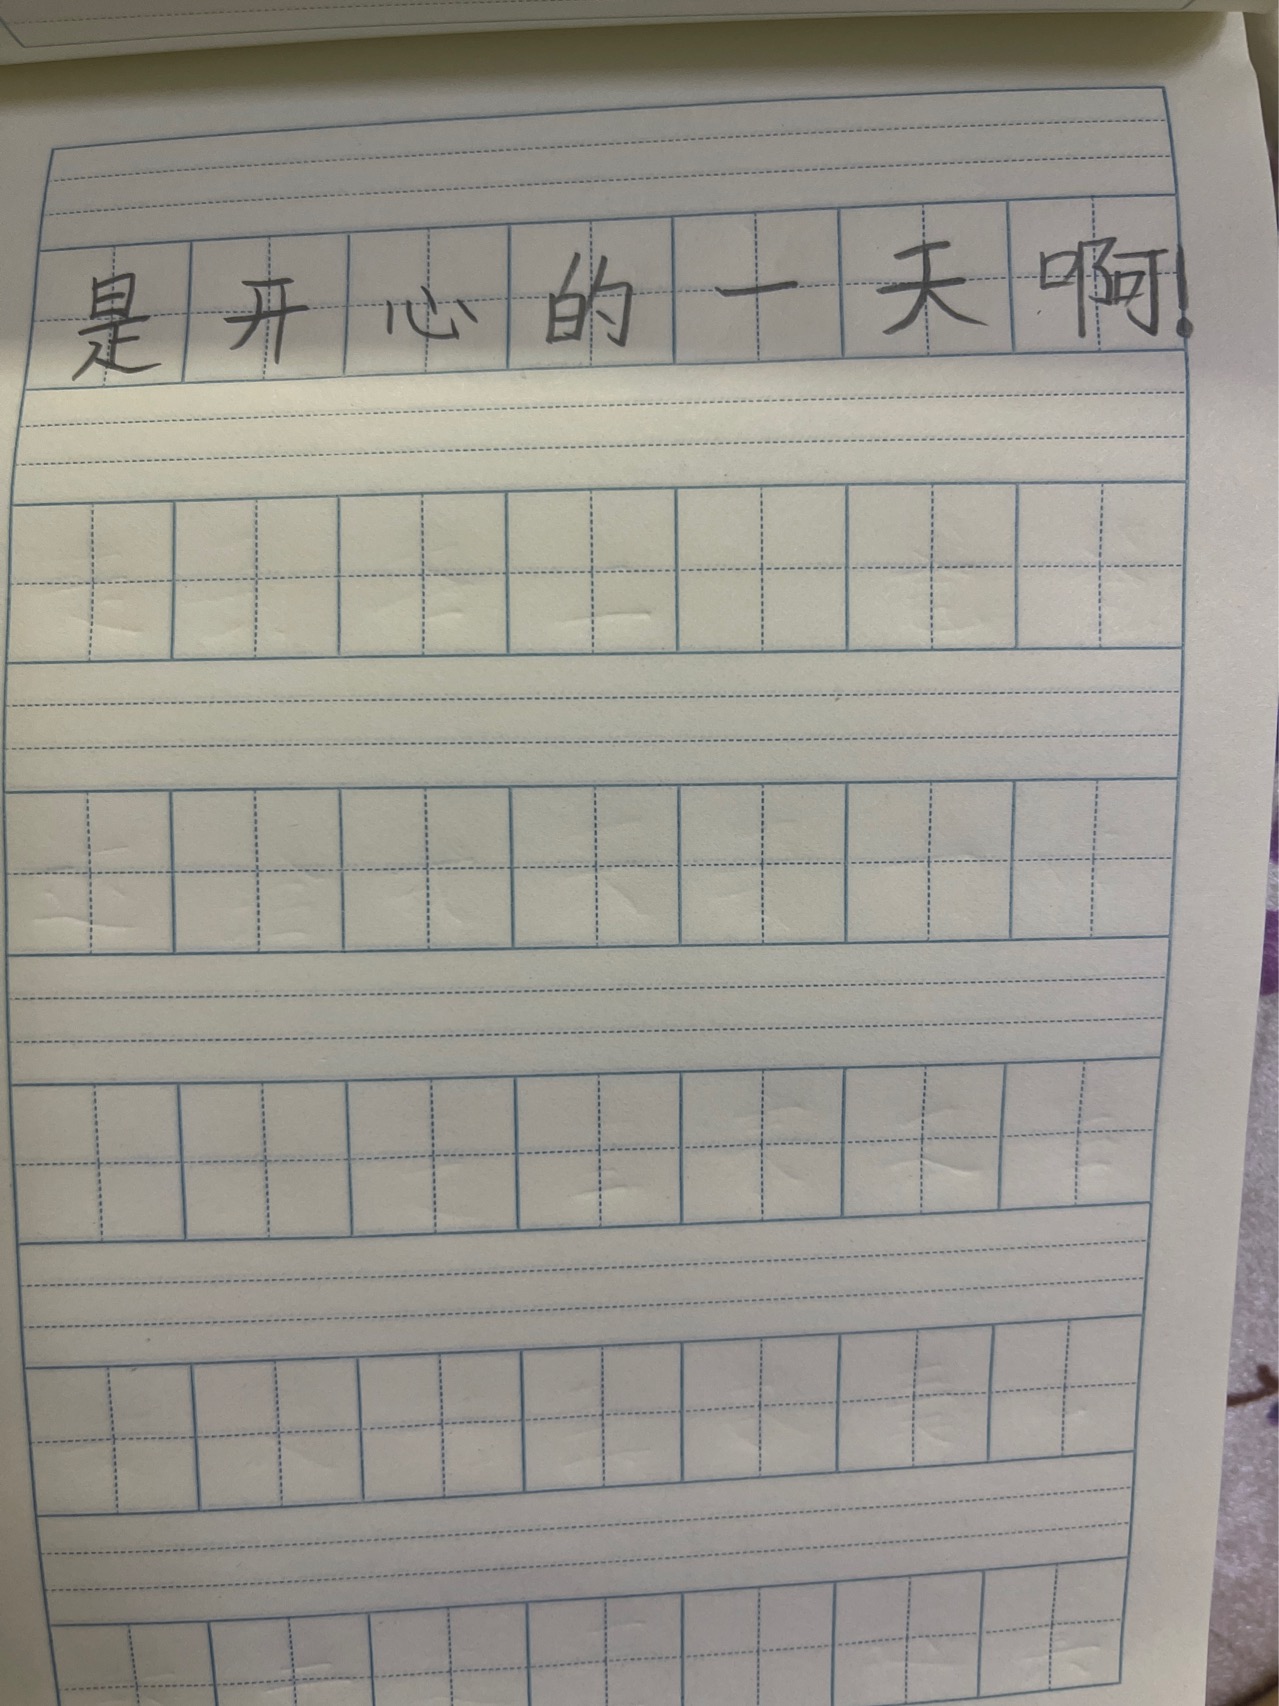 是开心的一天啊!